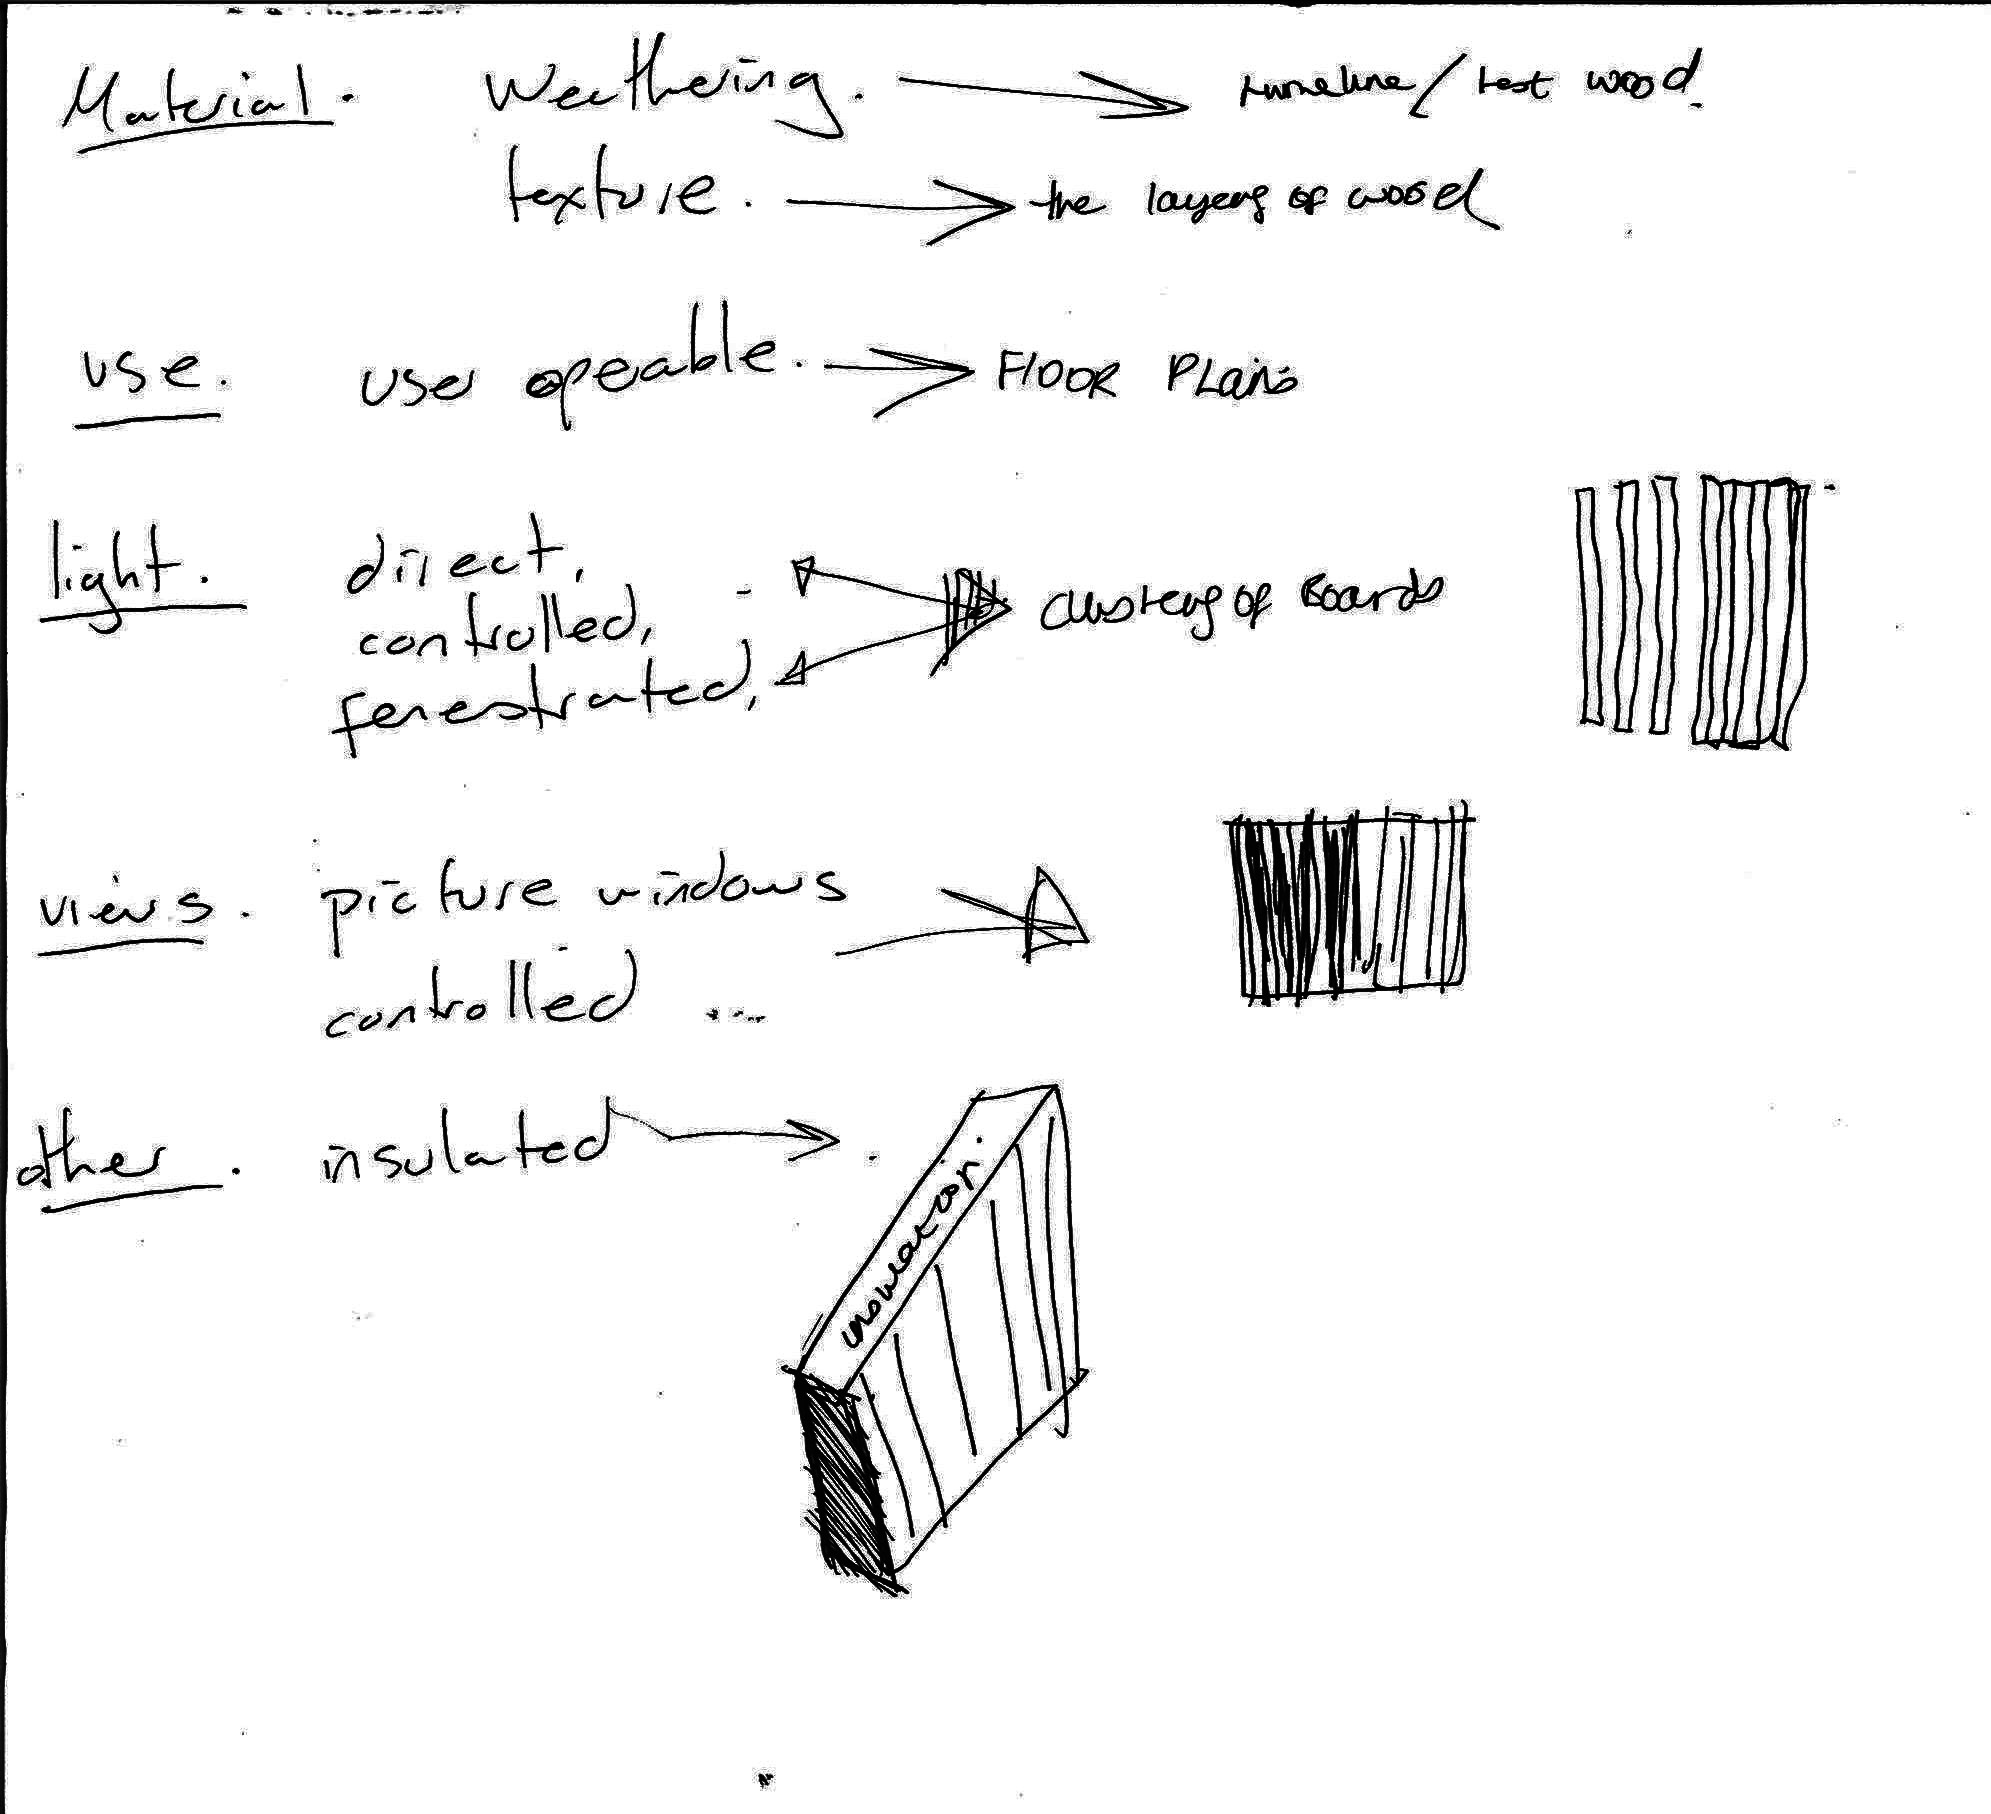 Material. Weathering. timeline/test wood.
texture. the layers of wood
use. user opeable. FLOOR PLans
light. direct,
controlled, Clusters of Boards
fenestrated,
views. picture windows
controlled ...
other. insulated
insulation.